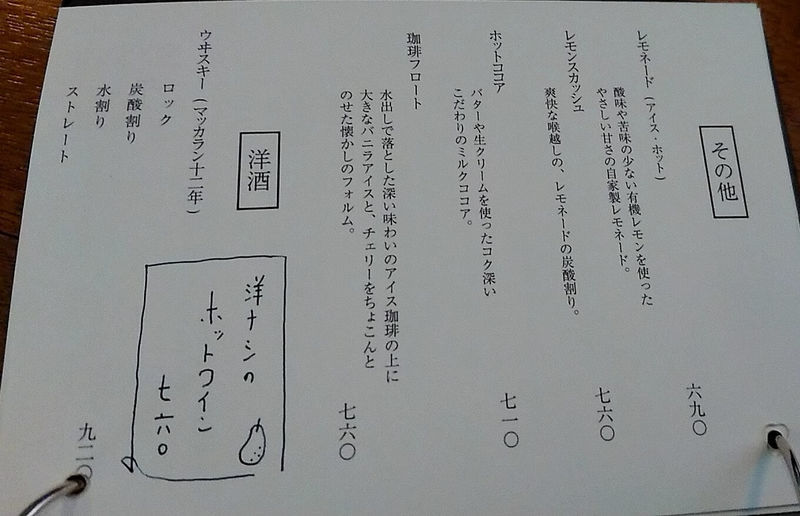 その他
レモネード（アイス・ホット）
酸味や苦味の少ない有機レモンを使った
やさしい甘さの自家製レモネード。
六九〇
レモンスカッシュ
爽快な喉越しの、レモネードの炭酸割り。
七六〇
ホットココア
バターや生クリームを使ったコク深い
こだわりのミルクココア。
七一〇
珈琲フロート
水出しで落とした深い味わいのアイス珈琲の上に
大きなバニラアイスと、チェリーをちょこんと
のせた懐かしのフォルム。
七六〇
洋酒
ウヰスキー（マッカラン十二年）
ロック
炭酸割り
水割り
ストレート
九二〇
洋ナシの
ホットワイン
七六〇